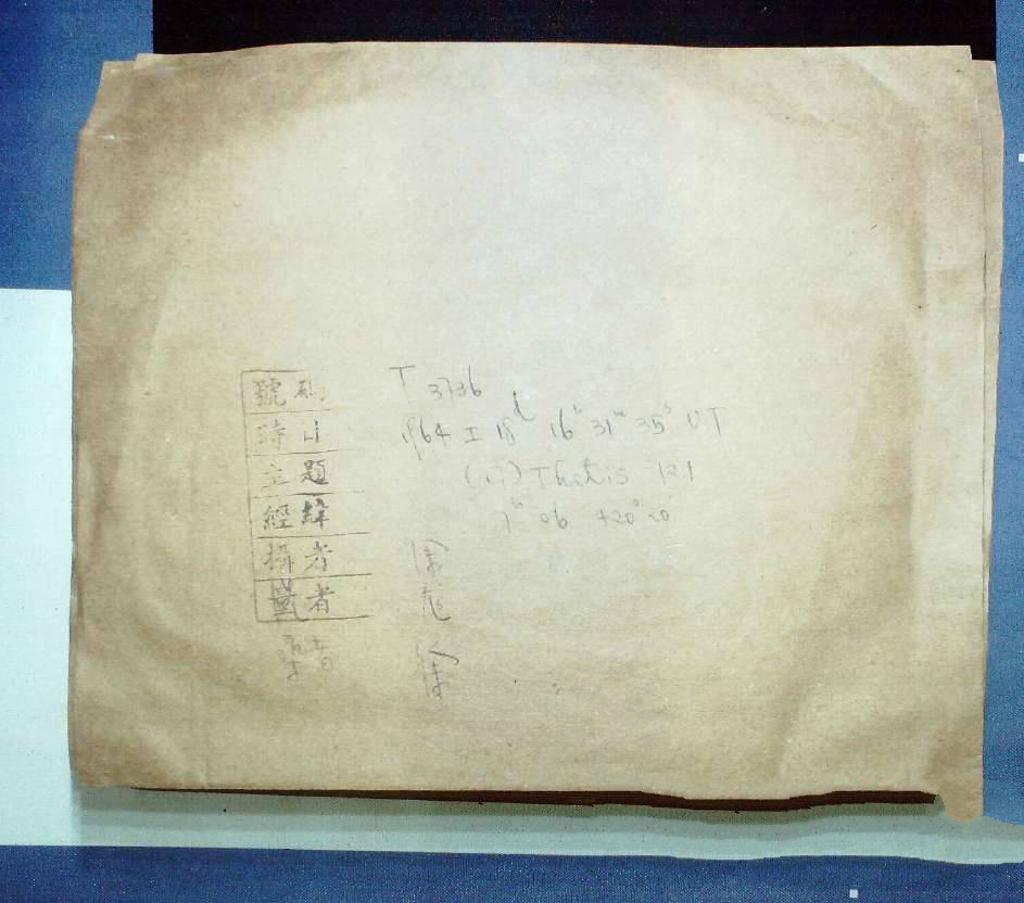 號碼 T 3736
時日 1964 I 18d 16h 31m 35s UT
主題 (17) Thetis 121
經緯 7h 06 +20°20
攝者 徐
量者
算者 徐